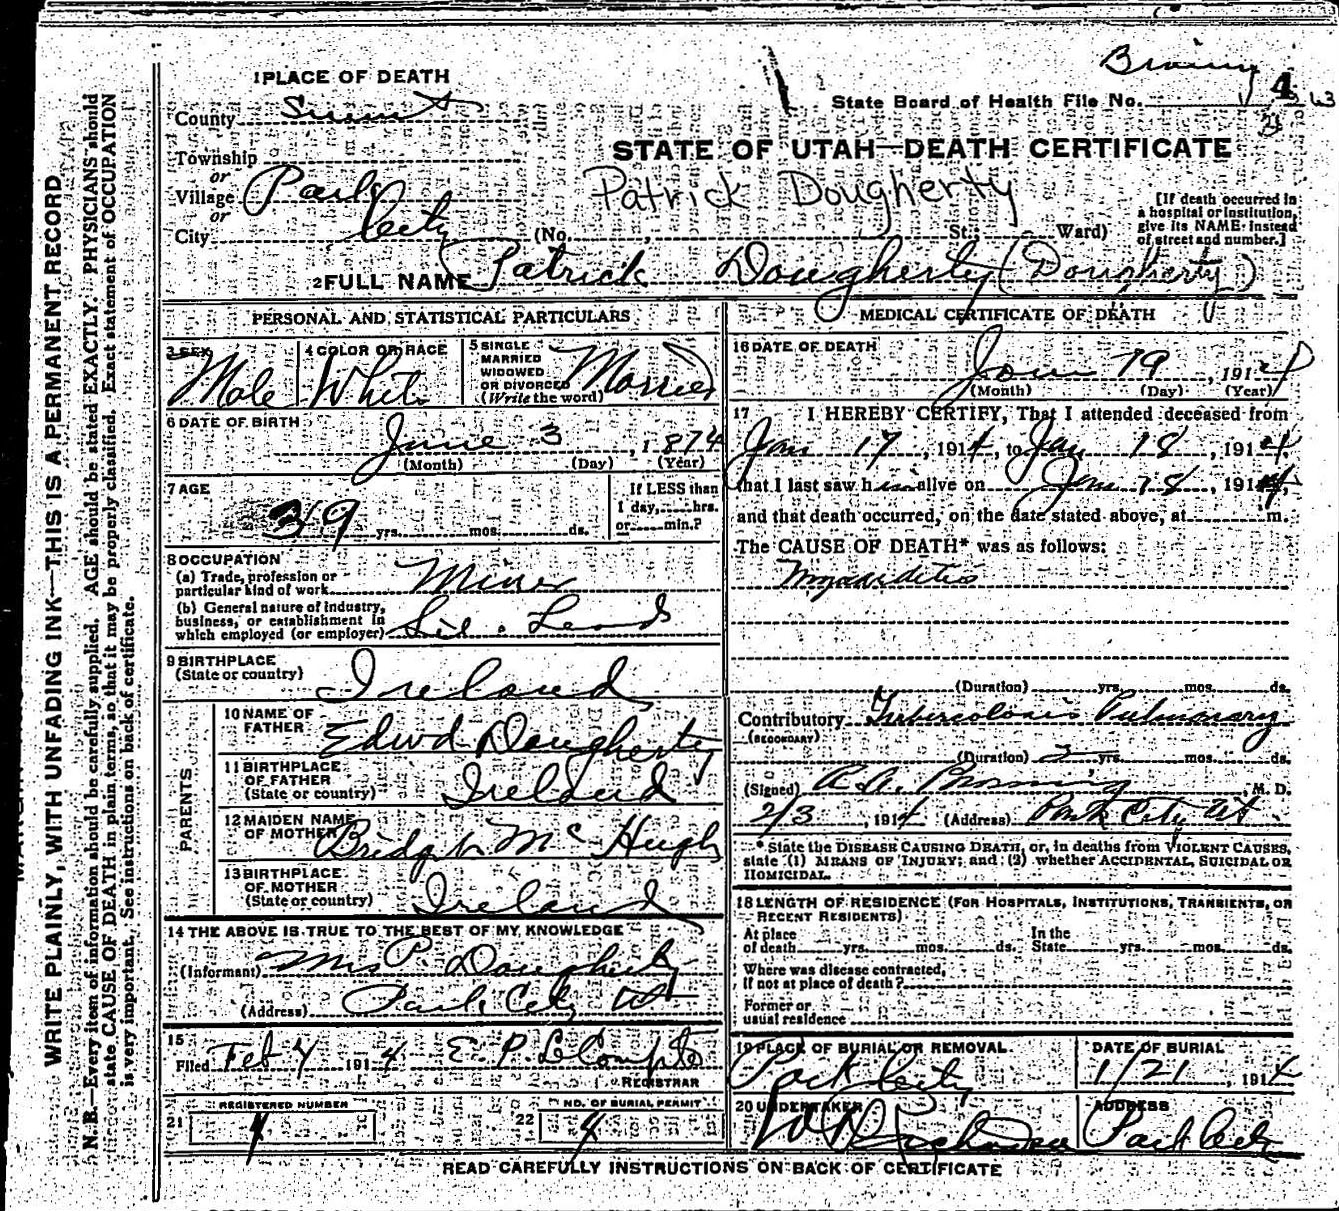 1 PLACE OF DEATH
County Summit
State Board of Health File No. 4
Township
or
Village Park
or
City City (No. , St.; Ward)
STATE OF UTAH—DEATH CERTIFICATE
Patrick Dougherty
[If death occurred in
a hospital or institution,
give its NAME instead
of street and number.]
2 FULL NAME Patrick Dougherty (Dougherty)
PERSONAL AND STATISTICAL PARTICULARS
3 SEX Male
4 COLOR OR RACE White
5 SINGLE
MARRIED
WIDOWED
OR DIVORCED
(Write the word) Married
6 DATE OF BIRTH
June 3, 1874
(Month) (Day) (Year)
7 AGE
39 yrs. mos. ds.
If LESS than
1 day, hrs.
or min.?
8 OCCUPATION
(a) Trade, profession or
particular kind of work Miner
(b) General nature of industry,
business, or establishment in
which employed (or employer) Sil. Lead
9 BIRTHPLACE
(State or country) Ireland
PARENTS
10 NAME OF
FATHER Edwd Dougherty
11 BIRTHPLACE
OF FATHER
(State or country) Ireland
12 MAIDEN NAME
OF MOTHER Bridget McHugh
13 BIRTHPLACE
OF MOTHER
(State or country) Ireland
14 THE ABOVE IS TRUE TO THE BEST OF MY KNOWLEDGE
(Informant) Mrs P. Dougherty
(Address) Park City Ut
15
Filed Feb 4 1914 E. P. LeCompte
REGISTRAR
21 REGISTERED NUMBER 4
22 NO. OF BURIAL PERMIT 4
MEDICAL CERTIFICATE OF DEATH
16 DATE OF DEATH
Jan 19, 1914
(Month) (Day) (Year)
17 I HEREBY CERTIFY, That I attended deceased from
Jan 17, 1914, to Jan 18, 1914,
that I last saw him alive on Jan 18, 1914,
and that death occurred, on the date stated above, at m.
The CAUSE OF DEATH* was as follows:
Myocarditis
(Duration) yrs. mos. ds.
Contributory Tuberculosis Pulmonary
(SECONDARY)
(Duration) yrs. mos. ds.
(Signed) M. D.
2/3, 1914 (Address) Park City Ut
* State the DISEASE CAUSING DEATH, or, in deaths from VIOLENT CAUSES,
state (1) MEANS OF INJURY; and (2) whether ACCIDENTAL, SUICIDAL OR
HOMICIDAL.
18 LENGTH OF RESIDENCE (FOR HOSPITALS, INSTITUTIONS, TRANSIENTS, OR
RECENT RESIDENTS)
At place
of death yrs. mos. ds. In the
State yrs. mos. ds.
Where was disease contracted,
If not at place of death?
Former or
usual residence
19 PLACE OF BURIAL OR REMOVAL
Park City
DATE OF BURIAL
1/21, 1914
20 UNDERTAKER
ADDRESS
Park City
READ CAREFULLY INSTRUCTIONS ON BACK OF CERTIFICATE
WRITE PLAINLY, WITH UNFADING INK—THIS IS A PERMANENT RECORD
N. B.—Every item of information should be carefully supplied. AGE should be stated EXACTLY. PHYSICIANS should
state CAUSE OF DEATH in plain terms, so that it may be properly classified. Exact statement of OCCUPATION
is very important. See instructions on back of certificate.